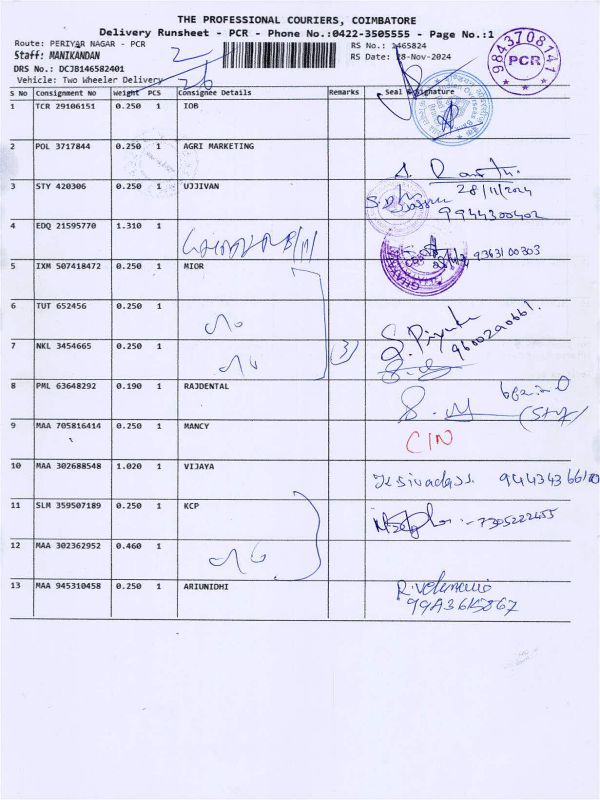 THE PROFESSIONAL COURIERS, COIMBATORE
Delivery Runsheet - PCR - Phone No.:0422-3505555 - Page No.:1
Route: PERIYAR NAGAR - PCR
RS No.: 1465824
Staff: MANIKANDAN
RS Date: 28-Nov-2024
DRS No.: DCJB146582401
Vehicle: Two Wheeler Delivery
9843708141
PCR
S No Consignment No Weight PCS Consignee Details Remarks Seal & Signature
1 TCR 29106151 0.250 1 IOB
2 POL 3717844 0.250 1 AGRI MARKETING
28/11/2024
3 STY 420306 0.250 1 UJJIVAN
9944300402
4 EDQ 21595770 1.310 1
93631 00303
5 IXM 507418472 0.250 1 MIOR
6 TUT 652456 0.250 1
S. Priyanka
7 NKL 3454665 0.250 1 (3)
8 PML 63648292 0.190 1 RAJDENTAL
9 MAA 705816414 0.250 1 MANCY CIN
10 MAA 302688548 1.020 1 VIJAYA
11 SLM 359507189 0.250 1 KCP 7305222455
12 MAA 302362952 0.460 1
13 MAA 945310458 0.250 1 ARIUNIDHI